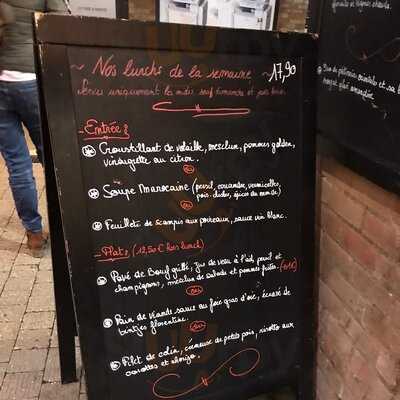 ~ Nos lunchs de la semaine ~ 17,90
Servis uniquement les midis sauf dimanche et jours fériés.
- Entrée :
Croustillant de volaille, mesclun, pommes golden,
vinaigrette au citron.
ou
Soupe Marocaine (persil, coriandre, vermicelles,
pois-chiches, épices du monde)
ou
Feuilleté de scampis aux poireaux, sauce vin blanc.
- Plats (12,50€ hors lunch)
Pavé de Boeuf grillé, jus de veau à l'ail, persil et
champignons, mesclun de salade et pommes frites. (+4€)
ou
Pain de viande sauce au foie gras d'oie, écrasé de
bintjes florentine.
ou
Filet de colin, crémeuse de petits pois, risotto aux
carottes et chorizo.